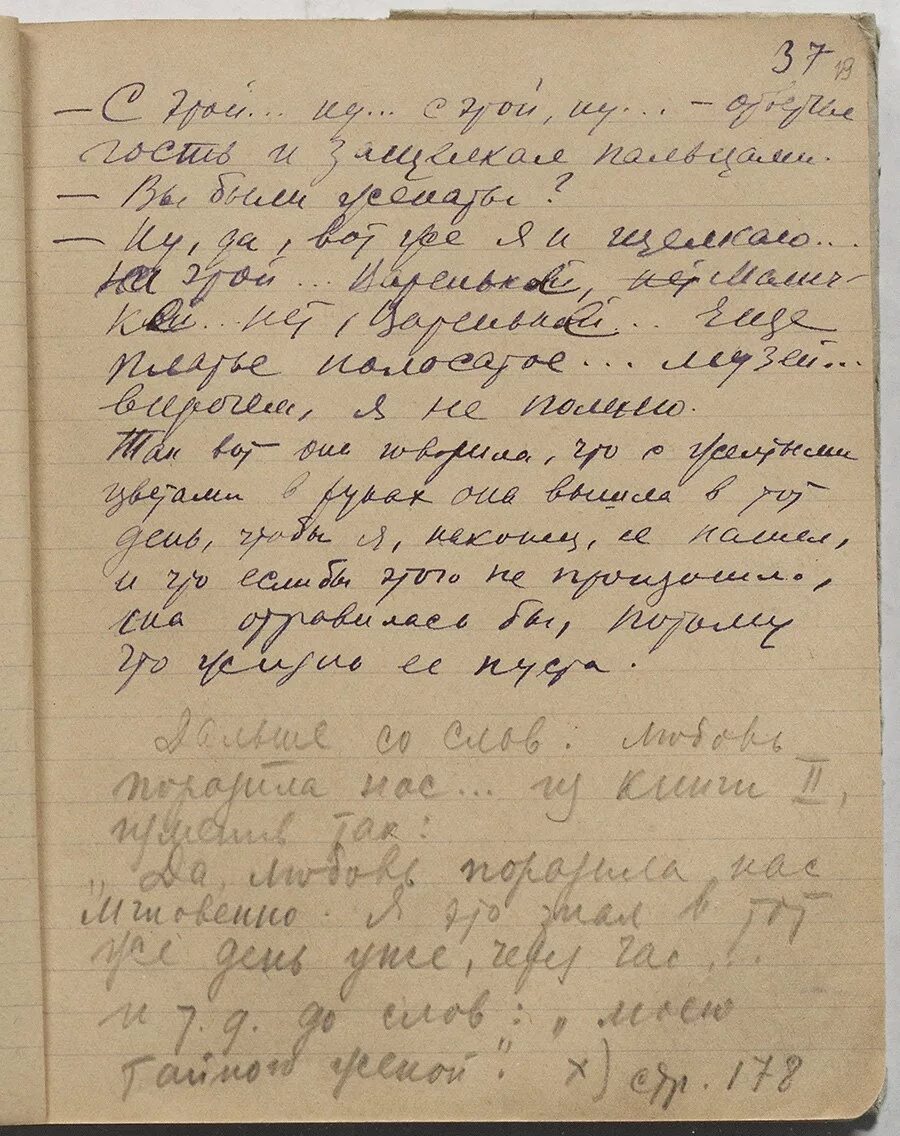 37 19
— С этой... ну... с этой, ну... — ответил
гость и защелкал пальцами.
— Вы были женаты?
— Ну, да, вот же я и щелкаю...
На этой... Вареньке, нет Манич-
ке.. нет, Вареньке... Еще
платье полосатое... музей...
впрочем, я не помню.
Так вот она говорила, что с желтыми
цветами в руках она вышла в тот
день, чтобы я, наконец, ее нашел,
и что если бы этого не произошло,
она отравилась бы, потому
что жизнь ее пуста.
Дальше со слов: любовь
поразила нас... из книги II,
изменив так:
„Да, любовь поразила нас
мгновенно. Я это знал в тот
же день уже, через час,...
и т. д. до слов: „моею
тайною женой". х) стр. 178